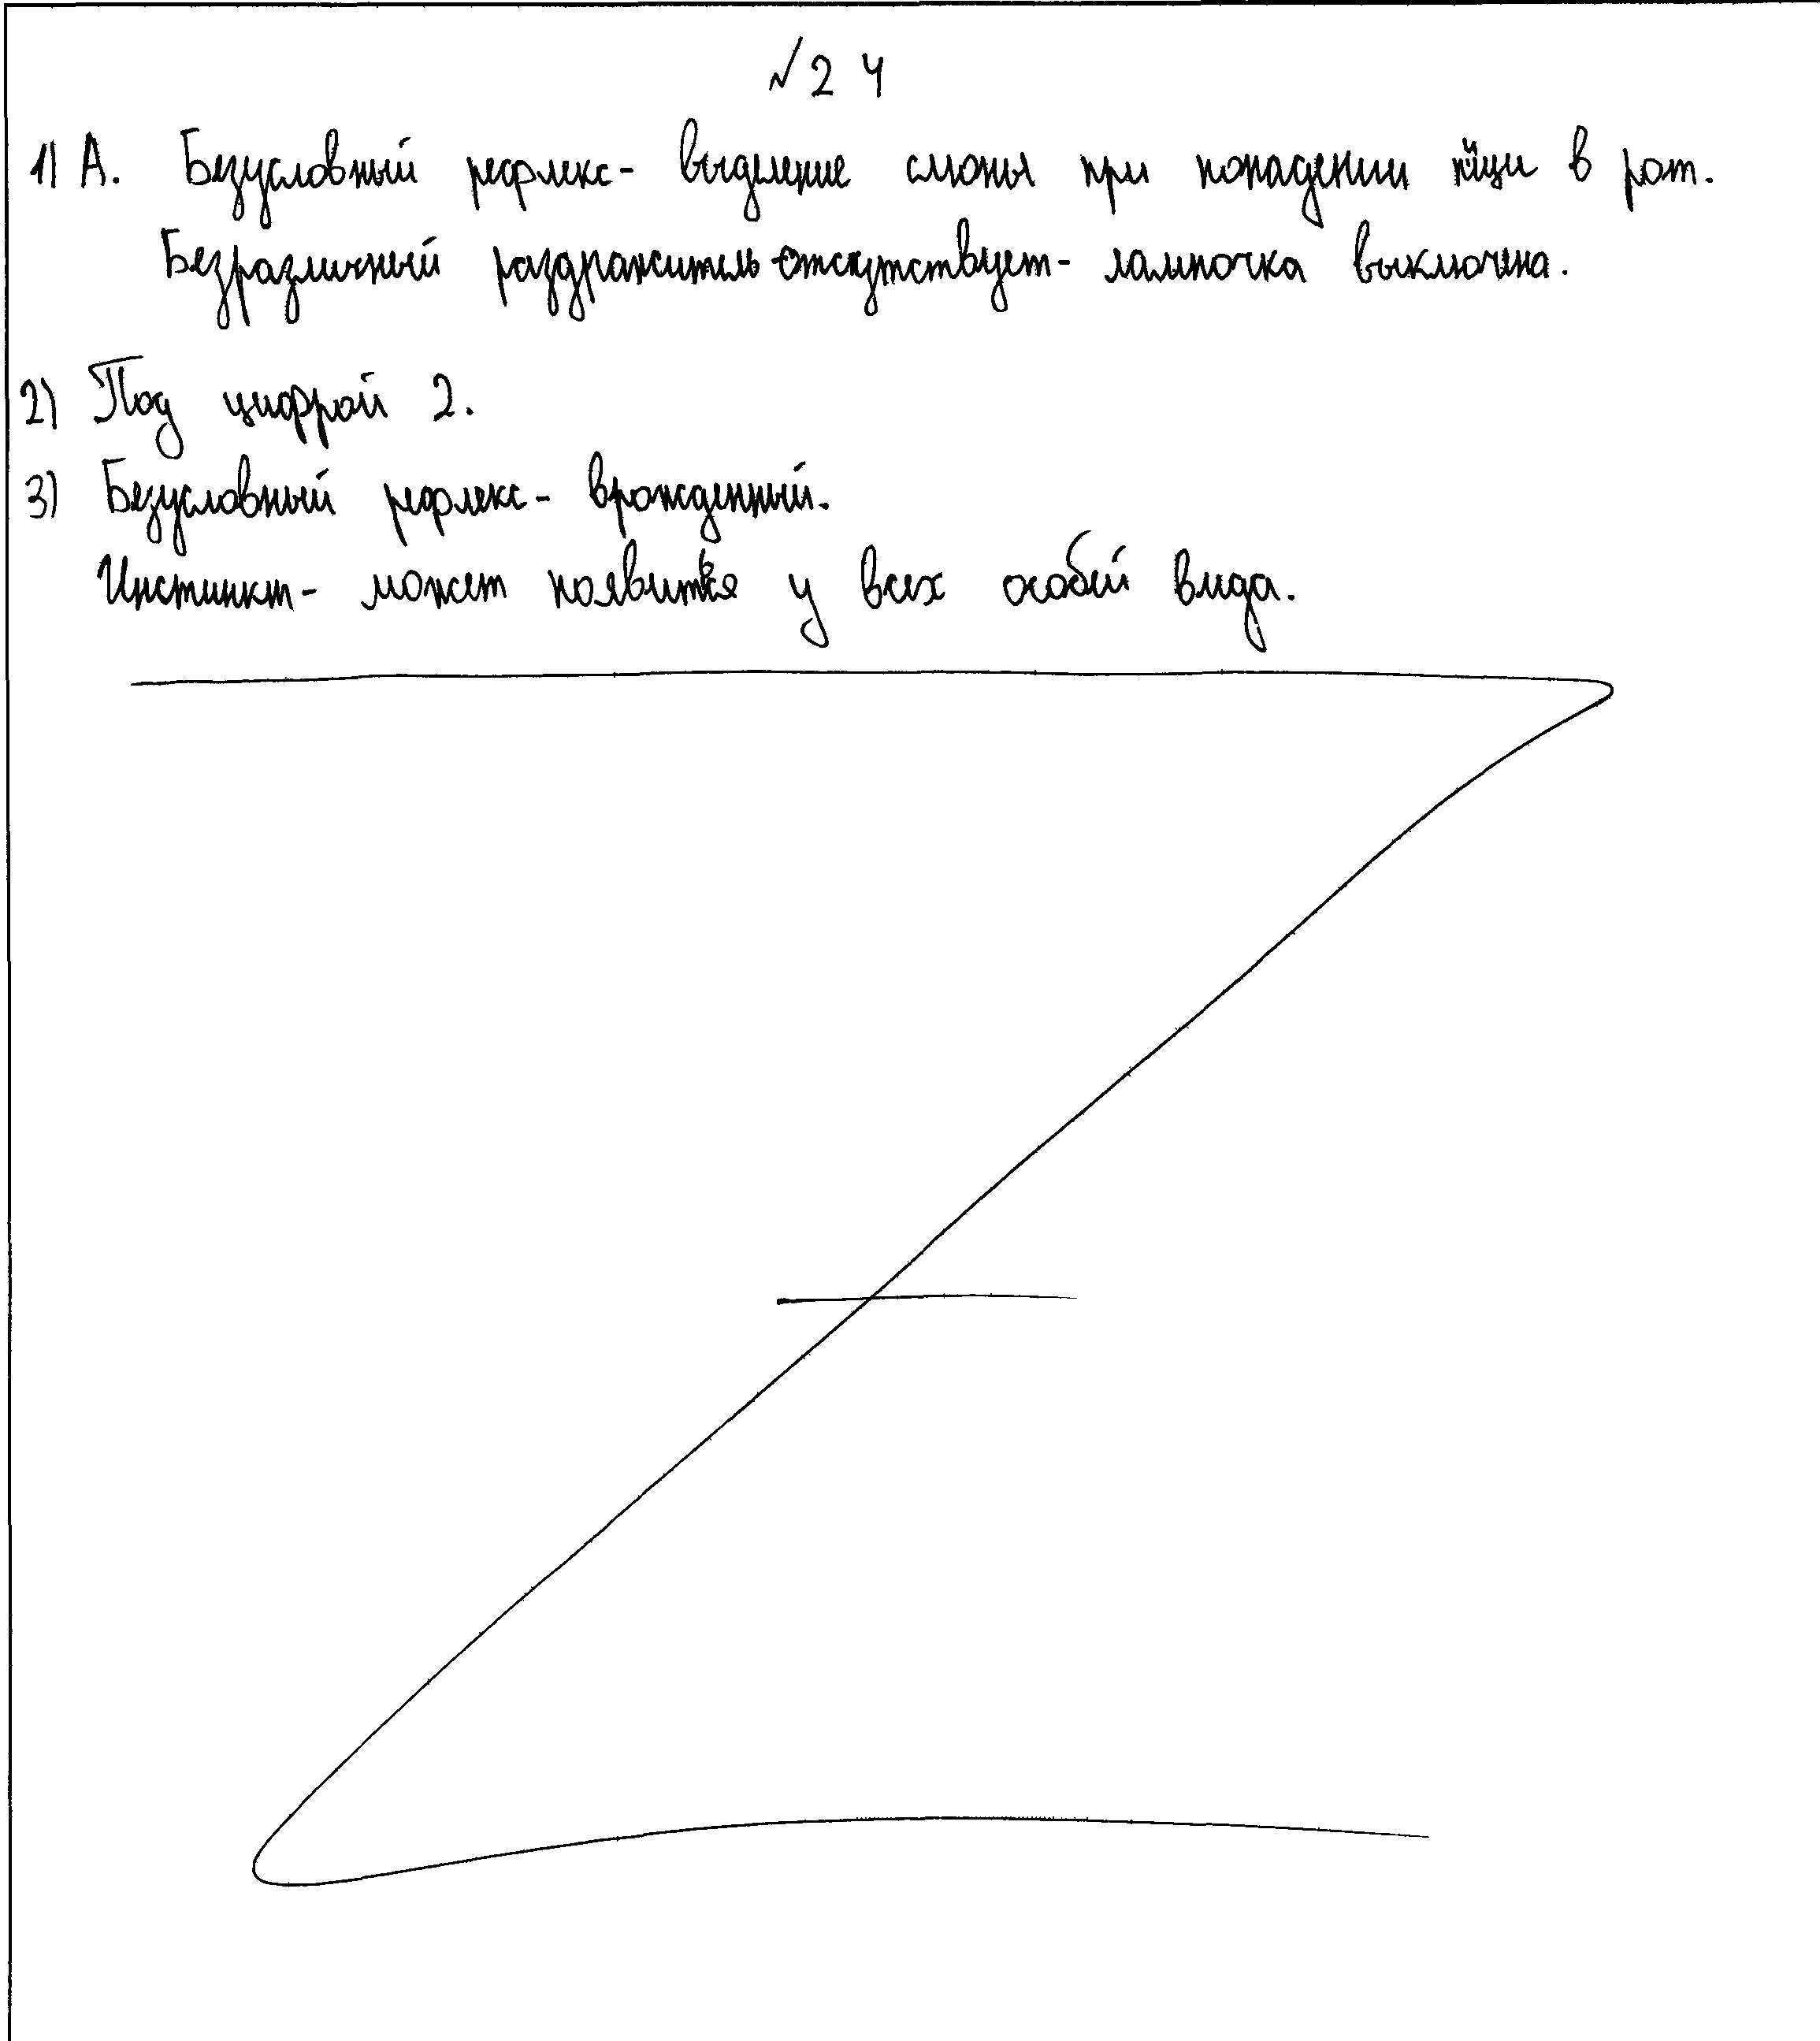 № 24
1) А. Безусловный рефлекс - выделение слюны при попадении пищи в рот.
Безразличный раздражитель отсутствует - лампочка выключена.
2) Под цифрой 2.
3) Безусловный рефлекс - врожденный.
Инстинкт - может появиться у всех особей вида.